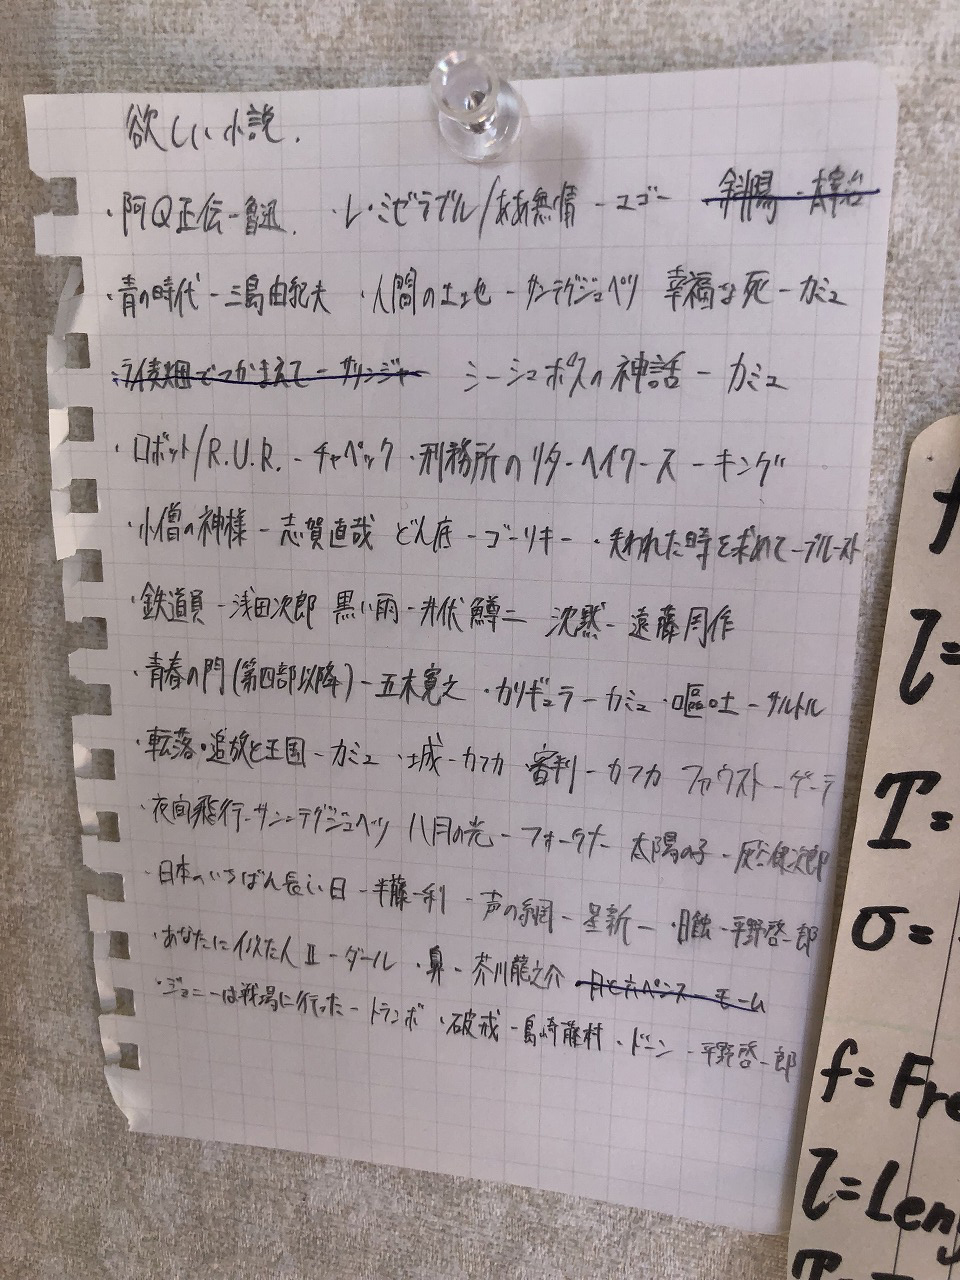 欲しい小説.
・阿Q正伝-魯迅. ・レ・ミゼラブル/ああ無情-ユゴー 斜陽-太宰治
・青の時代-三島由紀夫 ・人間の土地-サンテグジュペリ 幸福な死-カミュ
・ライ麦畑でつかまえて-サリンジャー シーシュポスの神話-カミュ
・ロボット/R.U.R.-チャペック ・刑務所のリタ・ヘイワース-キング
・小僧の神様-志賀直哉 どん底-ゴーリキー ・失われた時を求めて-プルースト
・鉄道員-浅田次郎 黒い雨-井伏鱒二 沈黙-遠藤周作
・青春の門(第四部以降)-五木寛之 ・カリギュラ-カミュ ・嘔吐-サルトル
・転落・追放と王国-カミュ ・城-カフカ 審判-カフカ ファウスト-ゲーテ
・夜間飛行-サン=テグジュペリ 八月の光-フォークナー 太陽の子-灰谷健次郎
・日本のいちばん長い日-半藤一利 ・声の網-星新一 ・日蝕-平野啓一郎
・あなたに似た人Ⅱ-ダール ・鼻-芥川龍之介 月と六ペンス-モーム
・ジョニーは戦場に行った-トランボ ・破戒-島崎藤村 ・ドーン-平野啓一郎
f
l=
T=
σ=
f=Fre
l=Leng
T=